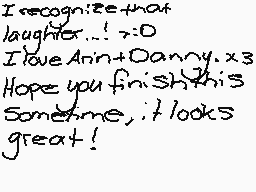 I recognize that
laughter...! >:D
I love Arin+Danny. x3
Hope you finish this
sometime, it looks
great!